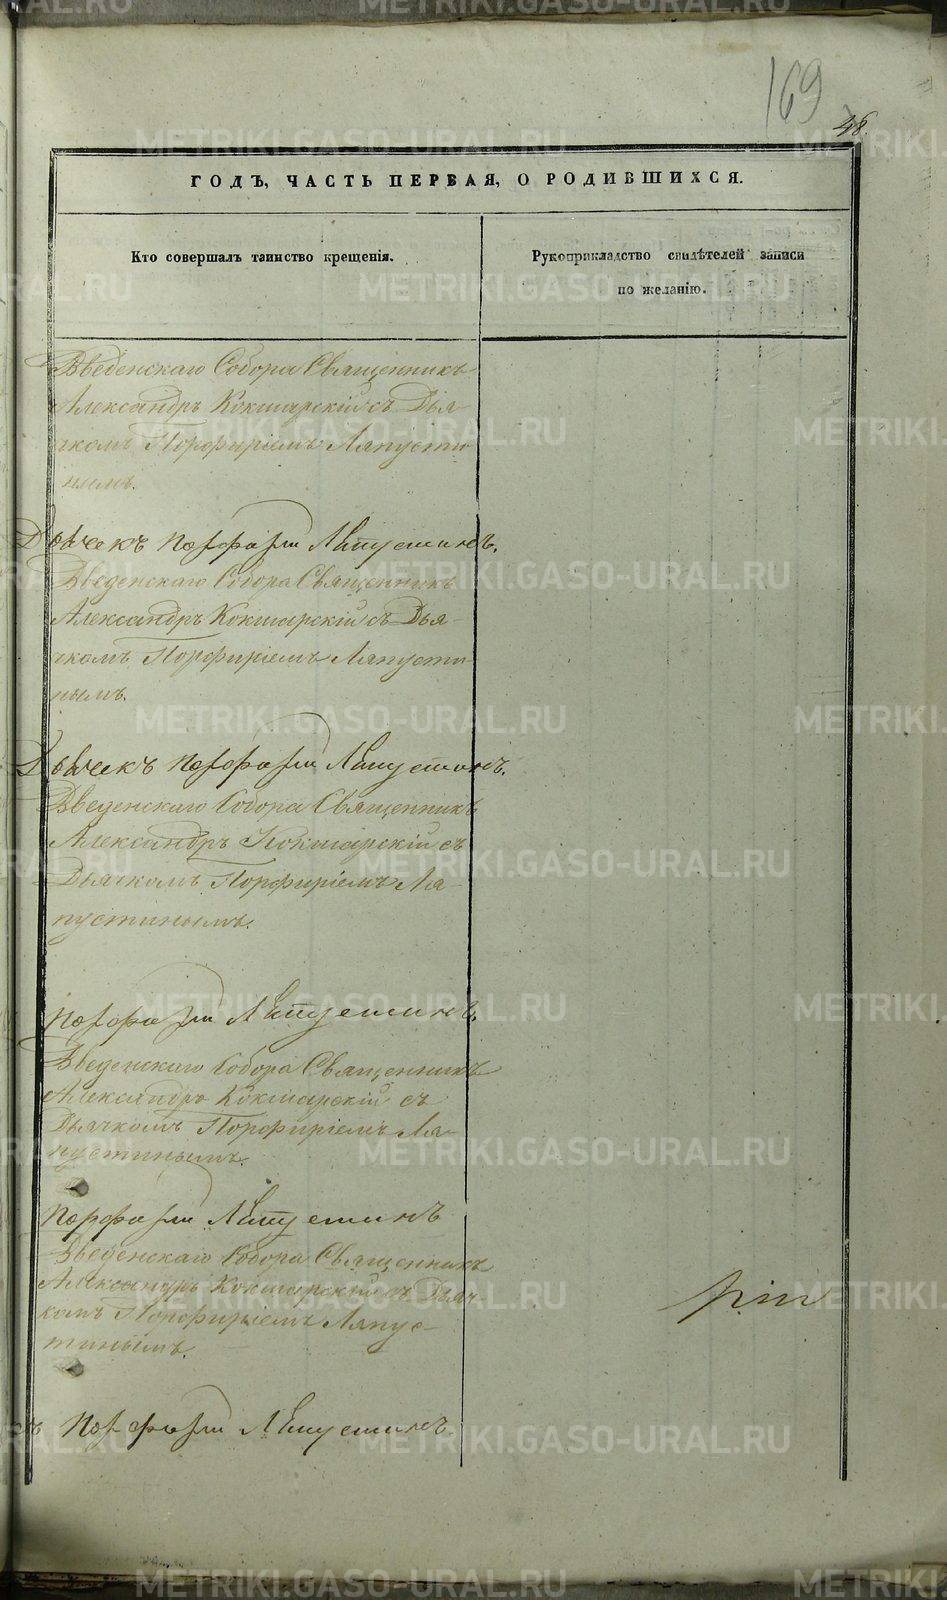 169
48.
ГОДЪ, ЧАСТЬ ПЕРВАЯ, О РОДИВШИХСЯ.
Кто совершалъ таинство крещенія.
Рукоприкладство свидѣтелей записи
по желанію.
Введенскаго Собора Священникъ
Александръ Кокшарскій съ Дья
чкомъ Порфиріемъ Ляпусти
нымъ.
Порфирій Ляпустинъ.
Введенскаго Собора Священникъ
Александръ Кокшарскій съ Дья-
чкомъ Порфиріемъ Ляпусти
нымъ.
Порфирій Ляпустинъ.
Введенскаго Собора Священникъ
Александръ Кокшарскій съ
Дьячкомъ Порфиріемъ Ля-
пустинымъ.
Порфирій Ляпустинъ.
Введенскаго Собора Священникъ
Александръ Кокшарскій съ
Дьячкомъ Порфиріемъ Ля-
пустинымъ.
Порфирій Ляпустинъ
Введенскаго Собора Священникъ
Александръ Кокшарскій съ Дьяч-
комъ Порфиріемъ Ляпус-
тинымъ.
Порфирій Ляпустинъ.
METRIKI.GASO-URAL.RU